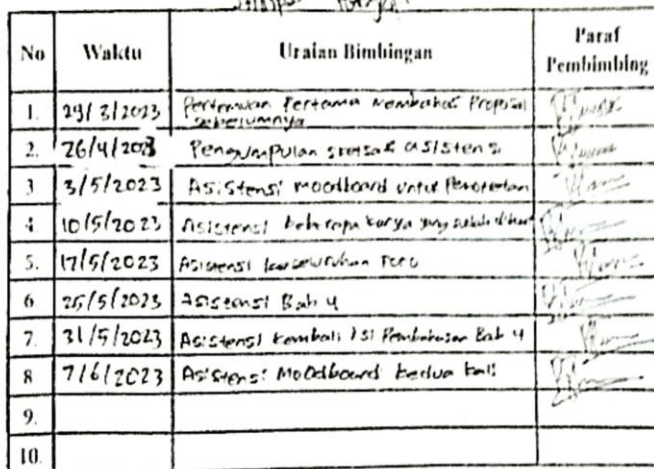 No Waktu Uraian Bimbingan Paraf Pembimbing
1. 29/3/2023 Pertemuan Pertama Membahas Proposal
sebelumnya
2. 26/4/2023 Pengumpulan sketsa & asistensi
3 3/5/2023 Asistensi moodboard untuk Pemotretan
4. 10/5/2023 Asistensi beberapa karya yang sudah dibuat
5. 17/5/2023 Asistensi keseluruhan Foto
6. 25/5/2023 Asistensi Bab 4
7. 31/5/2023 Asistensi kembali isi Pembahasan Bab 4
8 7/6/2023 Asistensi Moodboard kedua kali
9.
10.